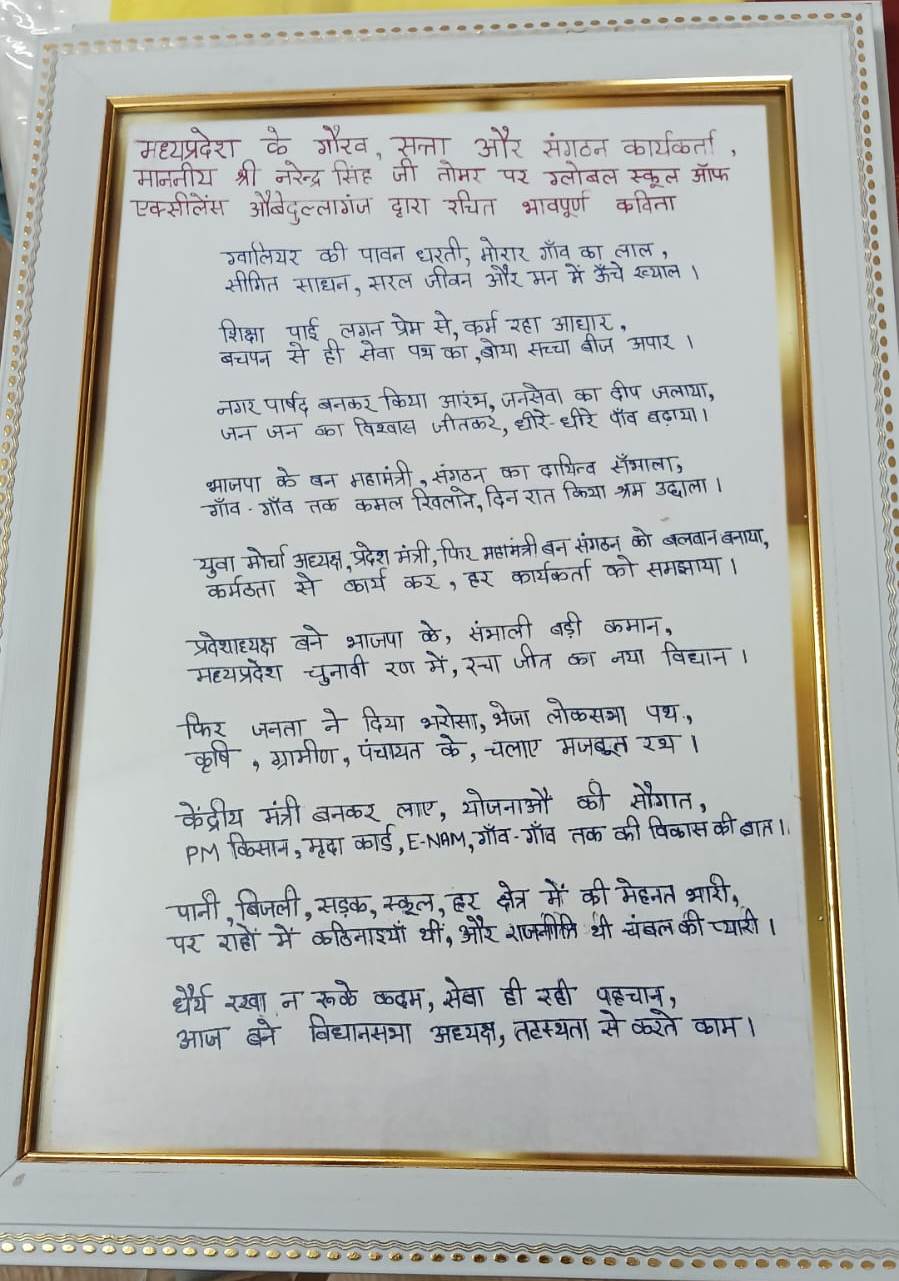 मध्यप्रदेश के गौरव, सत्ता और संगठन कार्यकर्ता,
माननीय श्री नरेन्द्र सिंह जी तोमर पर ग्लोबल स्कूल ऑफ
एक्सीलेंस औबेदुल्लागंज द्वारा रचित भावपूर्ण कविता
ग्वालियर की पावन धरती, मोरार गाँव का लाल,
सीमित साधन, सरल जीवन और मन में ऊँचे ख्याल।
शिक्षा पाई लगन प्रेम से, कर्म रहा आधार,
बचपन से ही सेवा पथ का, बोया सच्चा बीज अपार।
नगर पार्षद बनकर किया आरंभ, जनसेवा का दीप जलाया,
जन जन का विश्वास जीतकर, धीरे-धीरे पाँव बढ़ाया।
भाजपा के बन महामंत्री, संगठन का दायित्व सँभाला,
गाँव-गाँव तक कमल खिलाने, दिन रात किया श्रम उछाला।
युवा मोर्चा अध्यक्ष, प्रदेश मंत्री, फिर महामंत्री बन संगठन को बलवान बनाया,
कर्मठता से कार्य कर, हर कार्यकर्ता को समझाया।
प्रदेशाध्यक्ष बने भाजपा के, संभाली बड़ी कमान,
मध्यप्रदेश चुनावी रण में, रचा जीत का नया विधान।
फिर जनता ने दिया भरोसा, भेजा लोकसभा पथ,
कृषि, ग्रामीण, पंचायत के, चलाए मजबूत रथ।
केंद्रीय मंत्री बनकर लाए, योजनाओं की सौगात,
PM किसान, मृदा कार्ड, E-NAM, गाँव-गाँव तक की विकास की बात।
पानी, बिजली, सड़क, स्कूल, हर क्षेत्र में की मेहनत भारी,
पर राहों में कठिनाइयाँ थीं, और राजनीति थी चंबल की प्यारी।
धैर्य रखा न रूके कदम, सेवा ही रही पहचान,
आज बने विधानसभा अध्यक्ष, तटस्थता से करते काम।